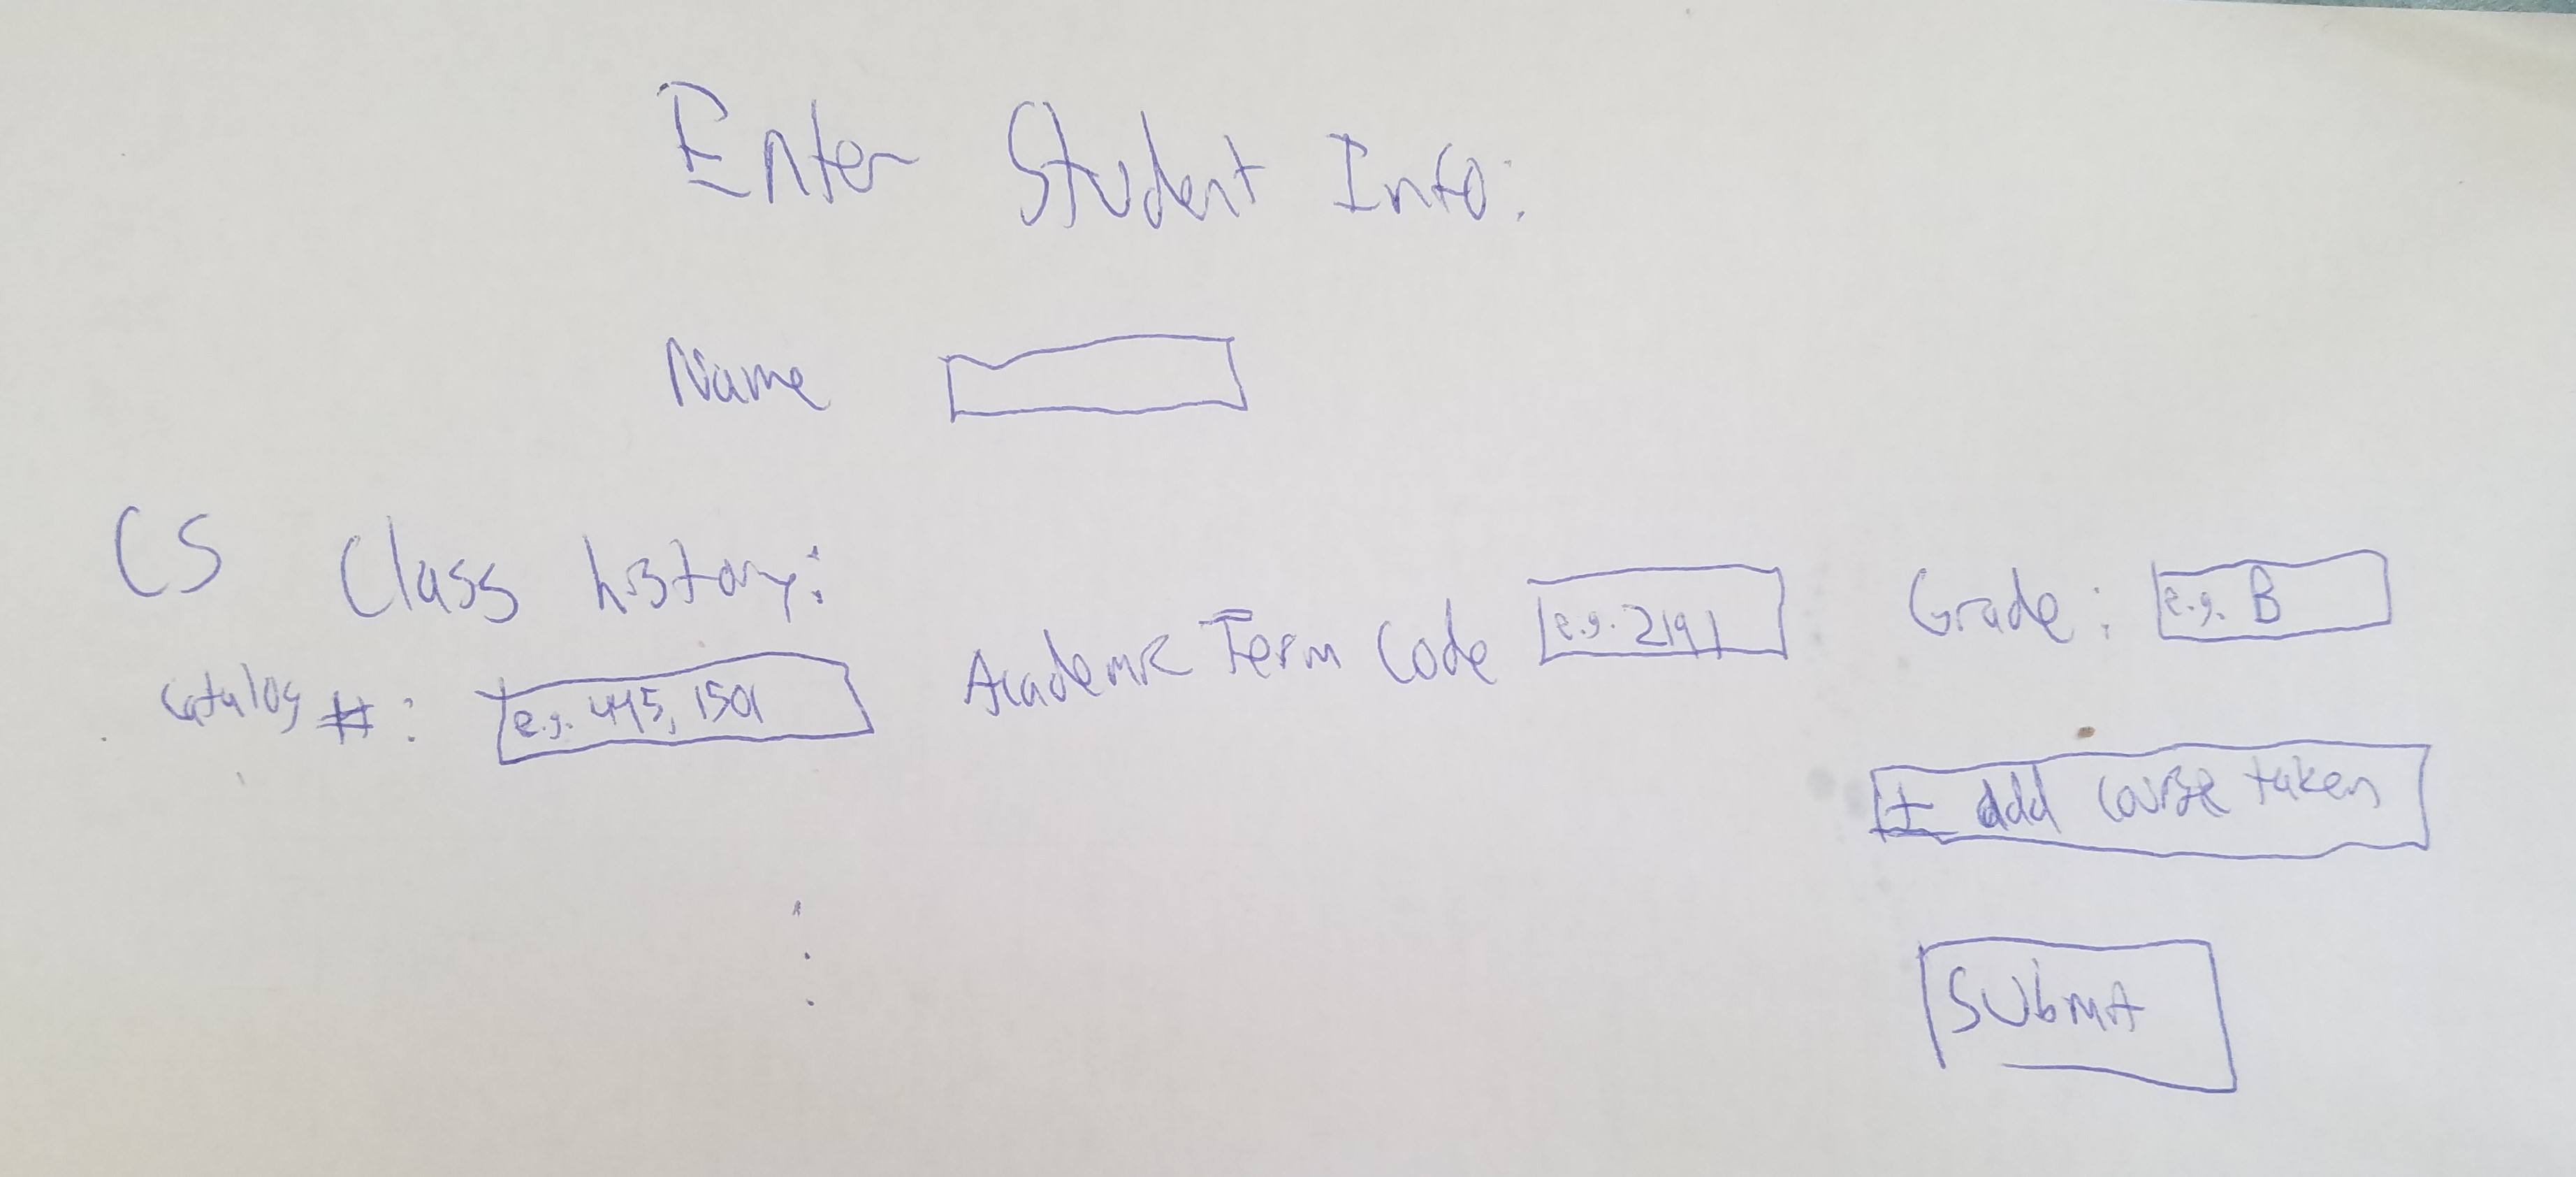 Enter Student Info:
Name
CS Class history:
Catalog #: e.g. 445, 1501 Academic Term Code e.g. 2191 Grade: e.g. B
+ add course taken
Submit